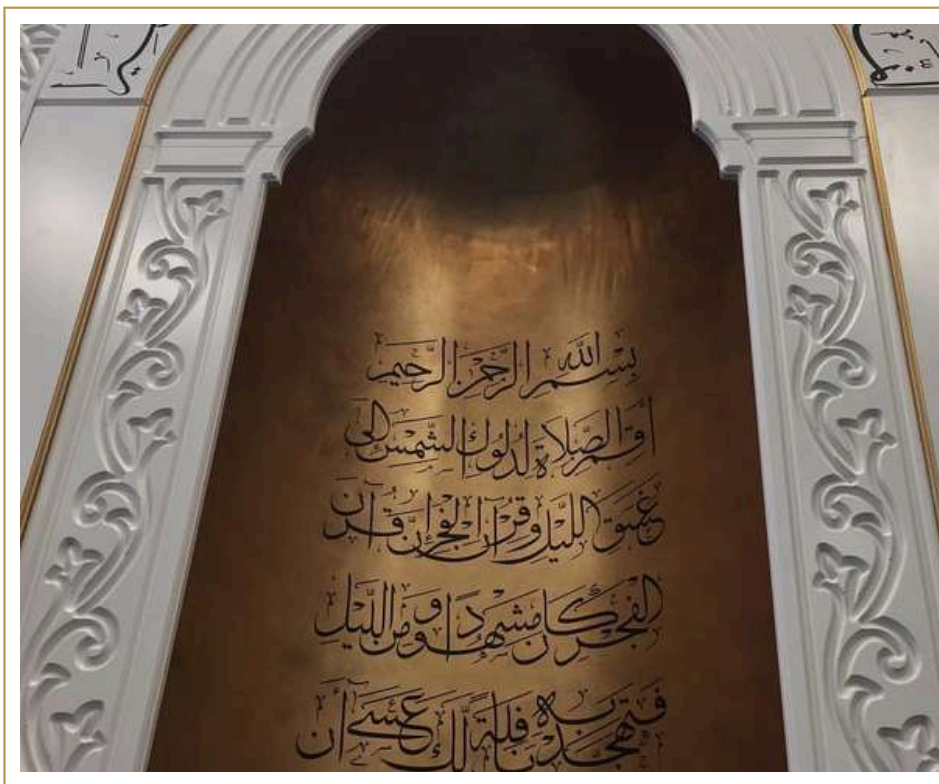 بِسْمِ اللَّهِ الرَّحْمَنِ الرَّحِيمِ
أَقِمِ الصَّلَاةَ لِدُلُوكِ الشَّمْسِ إِلَى
غَسَقِ اللَّيْلِ وَقُرْآنَ الْفَجْرِ إِنَّ قُرْآنَ
الْفَجْرِ كَانَ مَشْهُودًا وَمِنَ اللَّيْلِ
فَتَهَجَّدْ بِهِ نَافِلَةً لَّكَ عَسَىٰ أَن